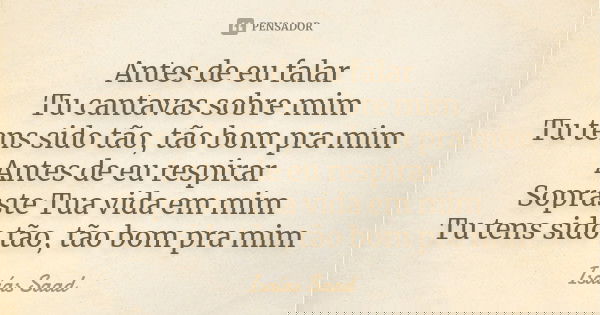 PENSADOR
Antes de eu falar
Tu cantavas sobre mim
Tu tens sido tão, tão bom pra mim
Antes de eu respirar
Sopraste Tua vida em mim
Tu tens sido tão, tão bom pra mim
Isaías Saad